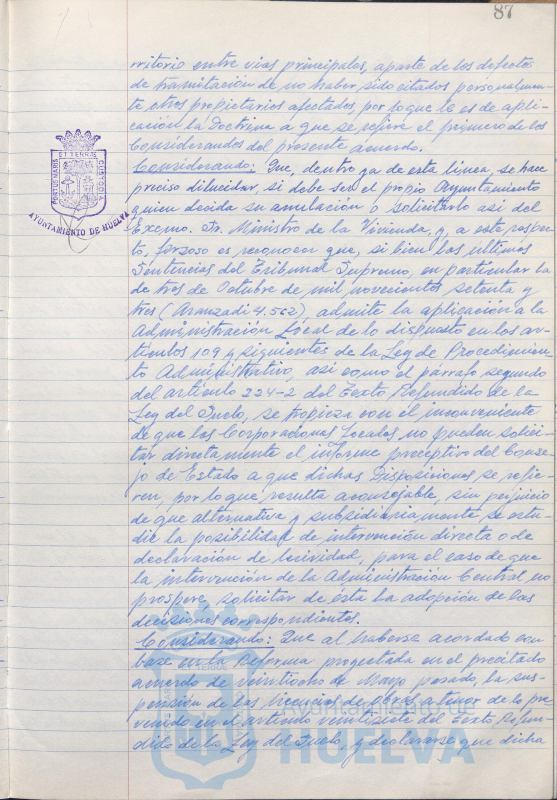 87
rritorio entre vias principales, aparte de los defectos
de tramitación de no haber sido citados personalmen-
te otros propietarios afectados, por lo que le es de apli-
cación la Doctrina a que se refiere el primero de los
Considerandos del presente acuerdo.
Considerando: Que, dentro ya de esta línea, se hace
preciso dilucidar, si debe ser el propio Ayuntamiento
quien decida su anulación o solicitarlo asi del
Excmo. Sr. Ministro de la Vivienda, y, a este respec-
to, forzoso es reconocer que, si bien las ultimas
Sentencias del Tribunal Supremo, en particular la
de tres de Octubre de mil novecientos setenta y
tres (Aranzadi 4.562), admite la aplicación a la
Administración Local de lo dispuesto en los ar-
tículos 109 y siguientes de la Ley de Procedimien-
to Administrativo, asi como el párrafo segundo
del artículo 224-2 del Texto Refundido de la
Ley del Suelo, se tropieza con el inconveniente
de que las Corporaciones Locales no pueden solici-
tar directamente el informe preceptivo del Conse-
jo de Estado a que dichas Disposiciones se refie-
ren, por lo que resulta aconsejable, sin perjuicio
de que alternativa y subsidiariamente se estu-
die la posibilidad de intervención directa o de
declaración de lesividad, para el caso de que
la intervención de la Administración Central no
prospere, solicitar de ésta la adopción de las
decisiones correspondientes.
Considerando: Que al haberse acordado con
base en la Reforma proyectada en el precitado
acuerdo de veintiocho de Mayo pasado, la sus-
pensión de las licencias de obras a tenor de lo pre-
venido en el artículo veintisiete del Texto Refun-
dido de la Ley del Suelo, y declararse que dicha
PORTUS MARIS ET TERRAE CUSTODIA
AYUNTAMIENTO DE HUELVA
Ayuntamiento de
HUELVA